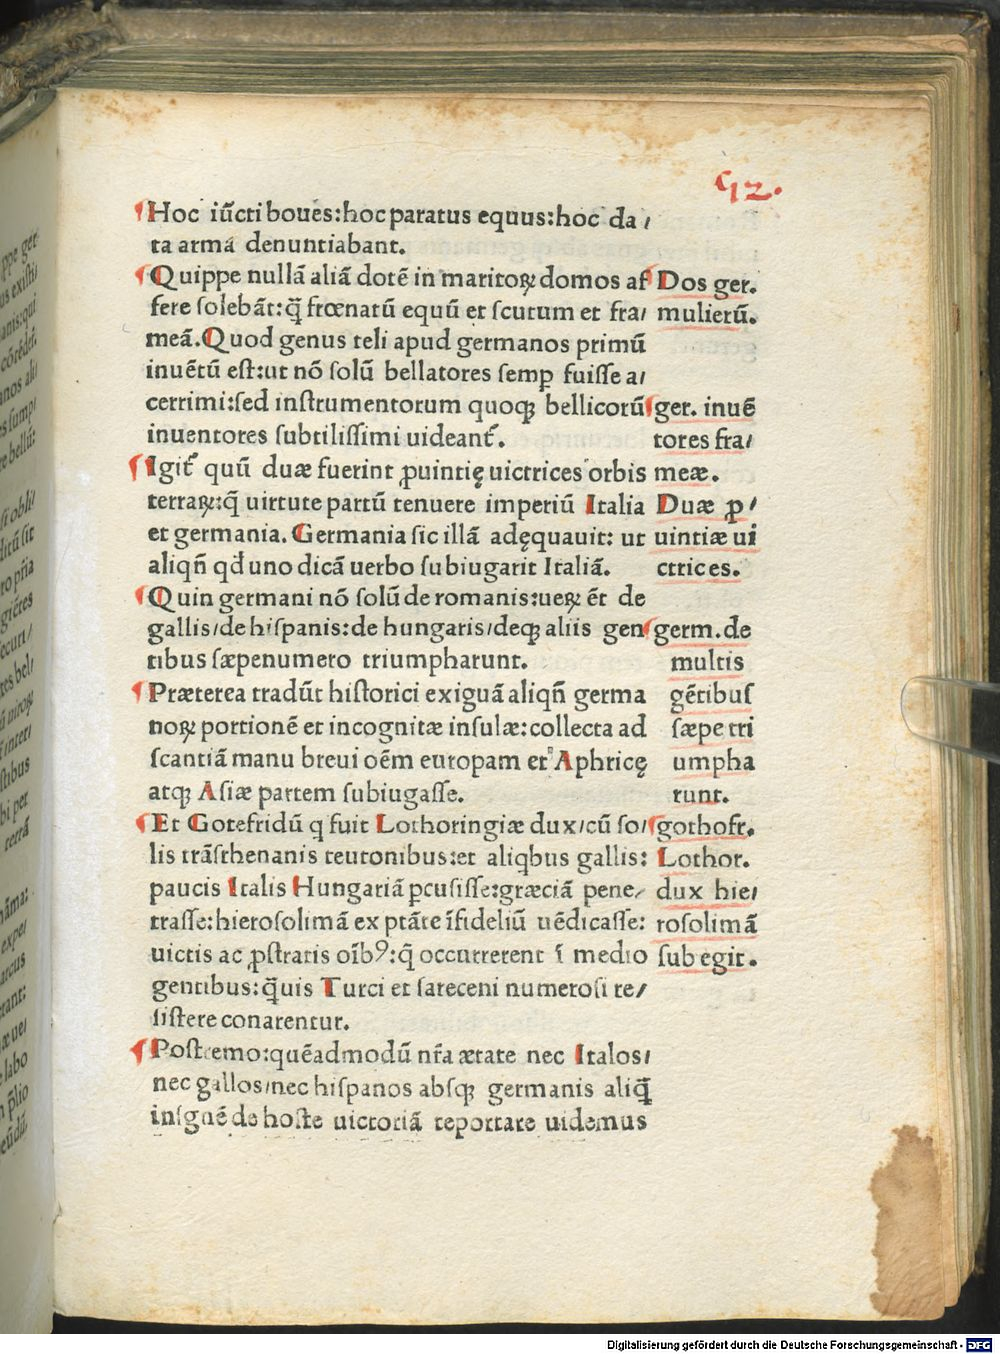 92.
¶Hoc iūcti boues:hoc paratus equus:hoc da/
ta arma denuntiabant.
¶Quippe nullā aliā dotē in maritoꝝ domos af
fere solebāt:q̄ frœnatū equū et scutum et fra/
meā.Quod genus teli apud germanos primū
inuētū est:ut nō solū bellatores semꝑ fuisse a/
cerrimi:sed instrumentorum quoqꝫ bellicorū
inuentores subtilissimi uideant᷑.
¶Igit᷑ quū duæ fuerint ꝓuintię uictrices orbis
terraꝝ:q̄ uirtute partū tenuere imperiū Italia
et germania. Germania sic illā adęquauit: ut
aliqn̄ qd̄ uno dicā uerbo subiugarit Italiā.
¶Quin germani nō solū de romanis:ueꝝ ēt de
gallis/de hispanis:de hungaris/deqꝫ aliis gen
tibus sæpenumero triumpharunt.
¶Præterea tradūt historici exiguā aliqn̄ germa
noꝝ portionē et incognitæ insulæ:collecta ad
scantiā manu breui oēm europam et Aphricę
atqꝫ Asiæ partem subiugasse.
¶Et Gotefridū q fuit Lothoringiæ dux/cū so/
lis trāsrhenanis teutonibus:et aliqbus gallis:
paucis Italis Hungariā ꝑcusisse:græciā pene/
trasse:hierosolimā ex ptāte īfideliū uēdicasse:
uictis ac ꝓstratis oīb⁹:q̄ occurrerent ī medio
gentibus:q̄uis Turci et sareceni numerosi re/
sistere conarentur.
¶Postremo:quēadmodū nr̄a ætate nec Italos/
nec gallos/nec hispanos absqꝫ germanis aliq̄
insignē de hoste uictoriā reportare uidemus
¶Dos ger.
mulierū.
¶ger. inuē
tores fra/
meæ.
Duæ ꝓ/
uintiæ ui
ctrices.
¶germ.de
multis
gētibus
sæpe tri
umpha
runt.
¶gothofr.
Lothor.
dux hie/
rosolimā
subegit.
Digitalisierung gefördert durch die Deutsche Forschungsgemeinschaft - DFG